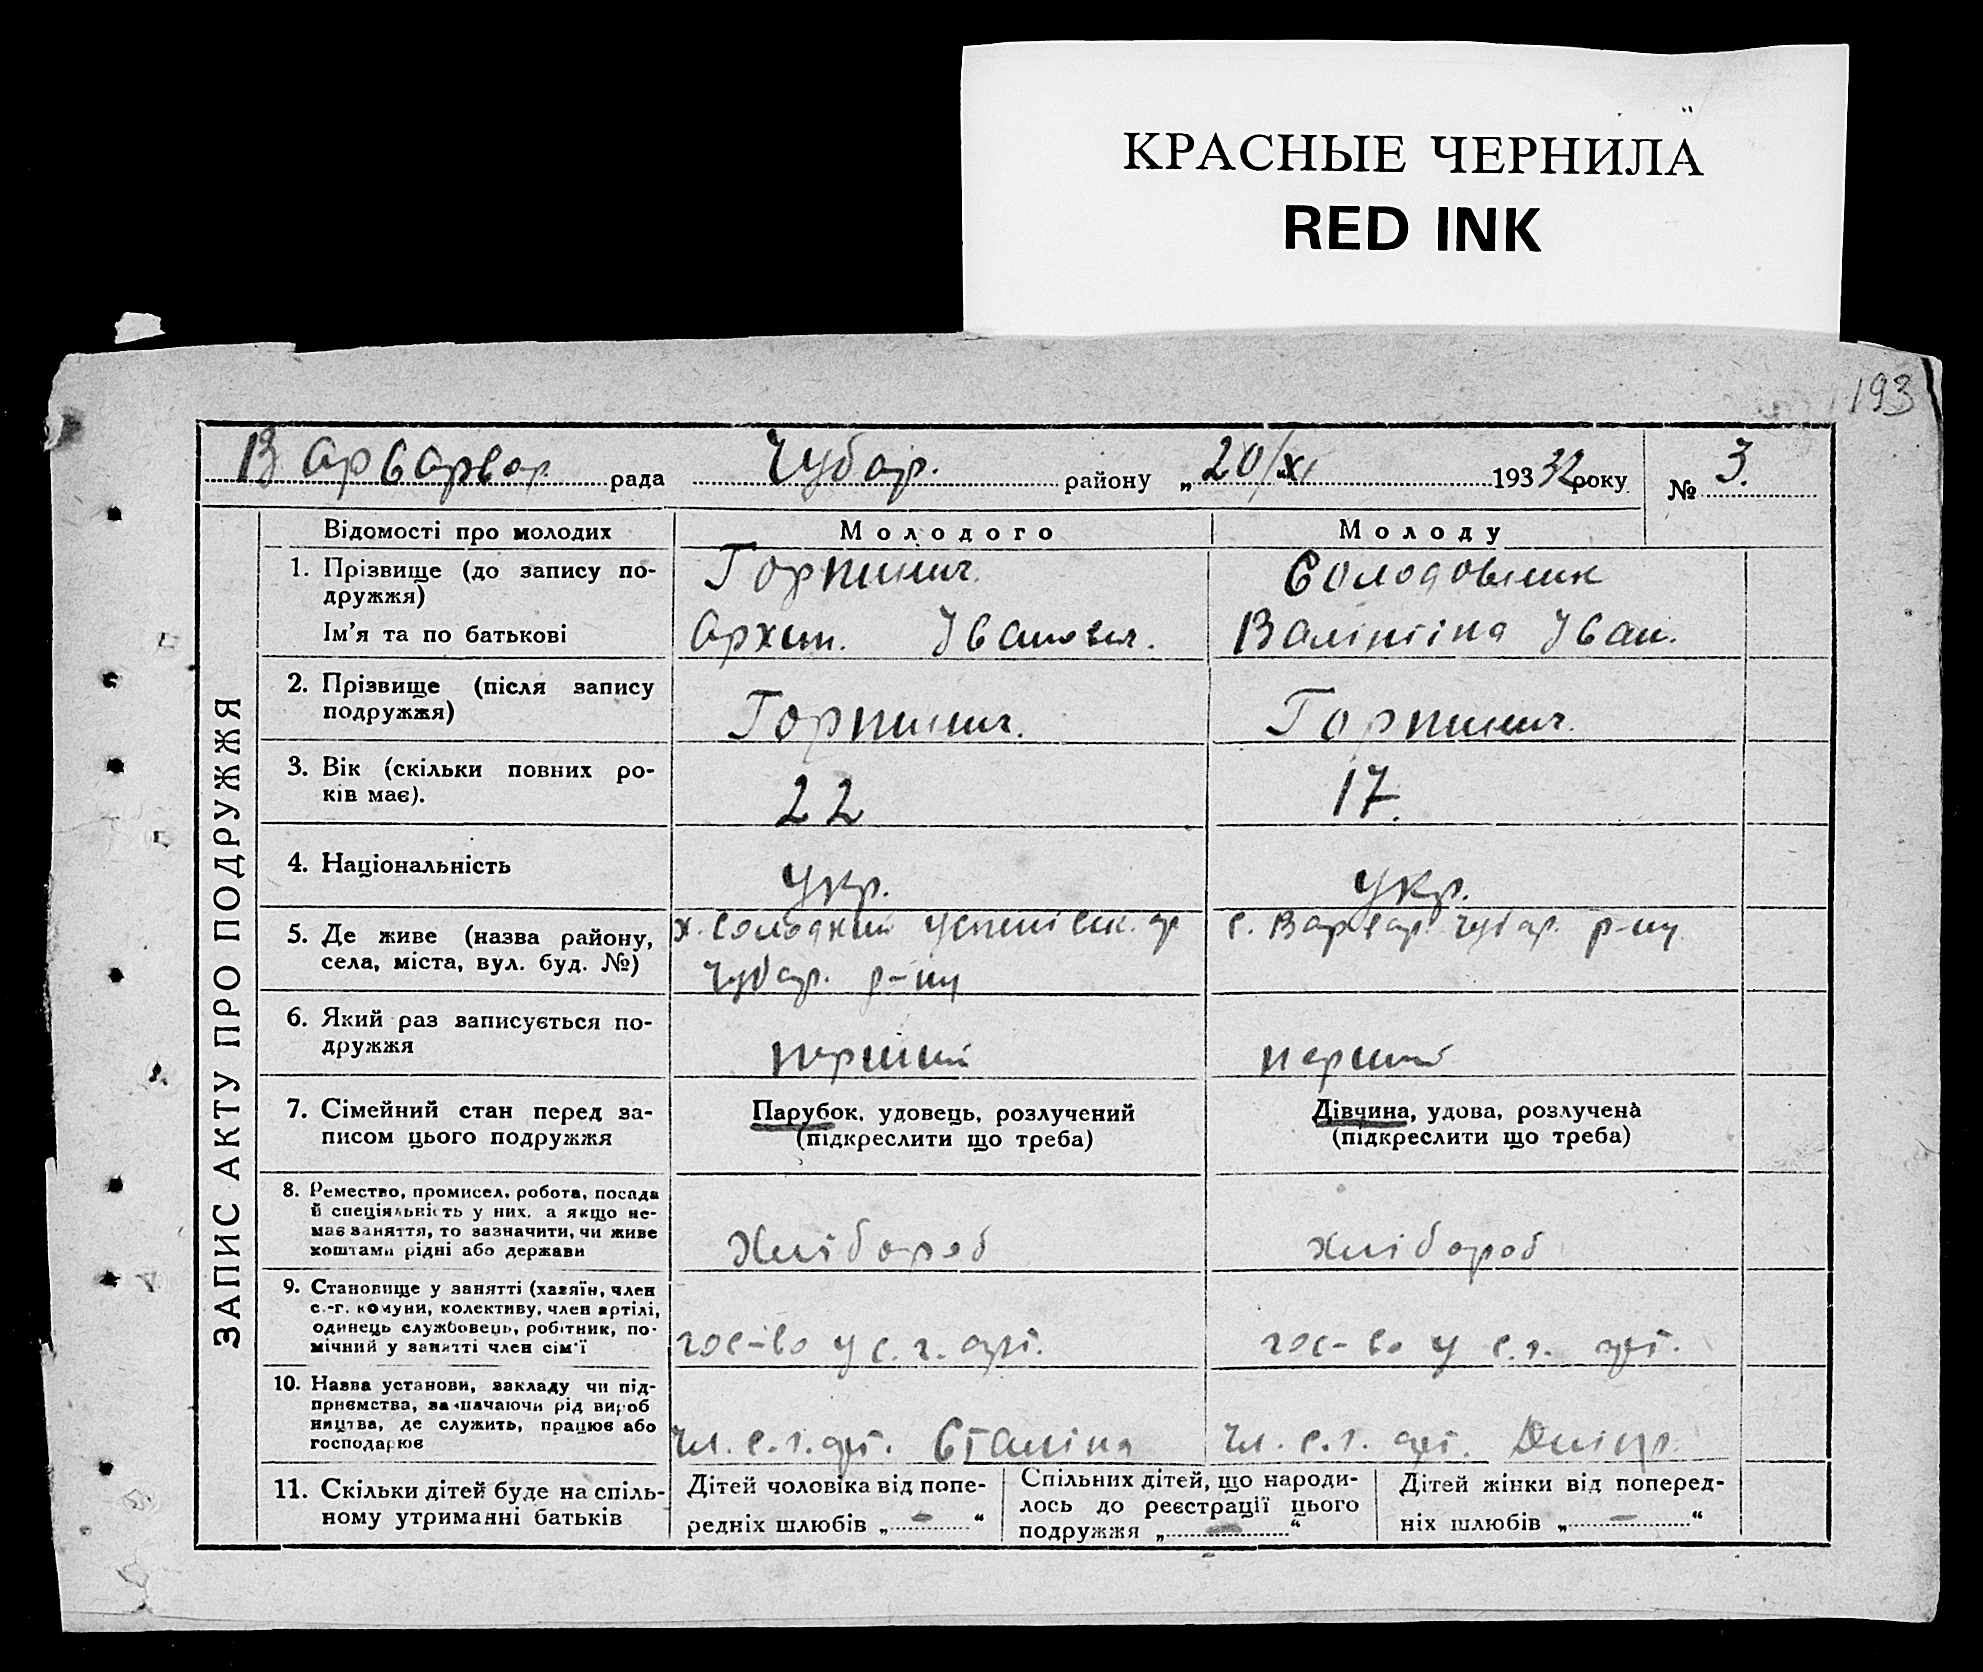 КРАСНЫЕ ЧЕРНИЛА
RED INK
193
Варварвар рада Чубар. району „20/XI 193 32 року № 3.
ЗАПИС АКТУ ПРО ПОДРУЖЖЯ
Відомості про молодих Молодого Молоду
1. Прізвище (до запису по-
дружжя)
Горпинич. Солодовник
Ім'я та по батькові Архип. Іванович. Валінтіна Іван.
2. Прізвище (після запису
подружжя)
Горпинич. Горпинич.
3. Вік (скільки повних ро-
ків має).
22 17.
4. Національність укр. укр.
5. Де живе (назва району,
села, міста, вул. буд. №)
х. Солодкий Успенівск.
Чубар. р-ну
с. Варвар Чубар. р-ну
6. Який раз записується по-
дружжя
перший перший
7. Сімейний стан перед за-
писом цього подружжя
Парубок, удовець, розлучений
(підкреслити що треба)
Дівчина, удова, розлучена
(підкреслити що треба)
8. Ремество, промисел, робота, посада
й спеціяльність у них, а якщо не-
має заняття, то зазначити, чи живе
коштами рідні або держави
Хлібороб хлібороб
9. Становище у занятті (хазяїн, член
с.-г. комуни, колективу, член артілі,
одинець службовець, робітник, по-
мічний у занятті член сім'ї
гос-во у с. г. арт. гос-во у с. г. арт.
10. Назва установи, закладу чи під-
приємства, зазначаючи рід вироб
ництва, де служить, працює або
господарює
Чл. с. г. арт. Сталіна Чл. с. г. арт. Дніпр.
11. Скільки дітей буде на спіль-
ному утриманні батьків
Дітей чоловіка від попе-
редніх шлюбів „ - “
Спільних дітей, що народи-
лось до реєстрації цього
подружжя „ - “
Дітей жінки від поперед-
ніх шлюбів „ - “